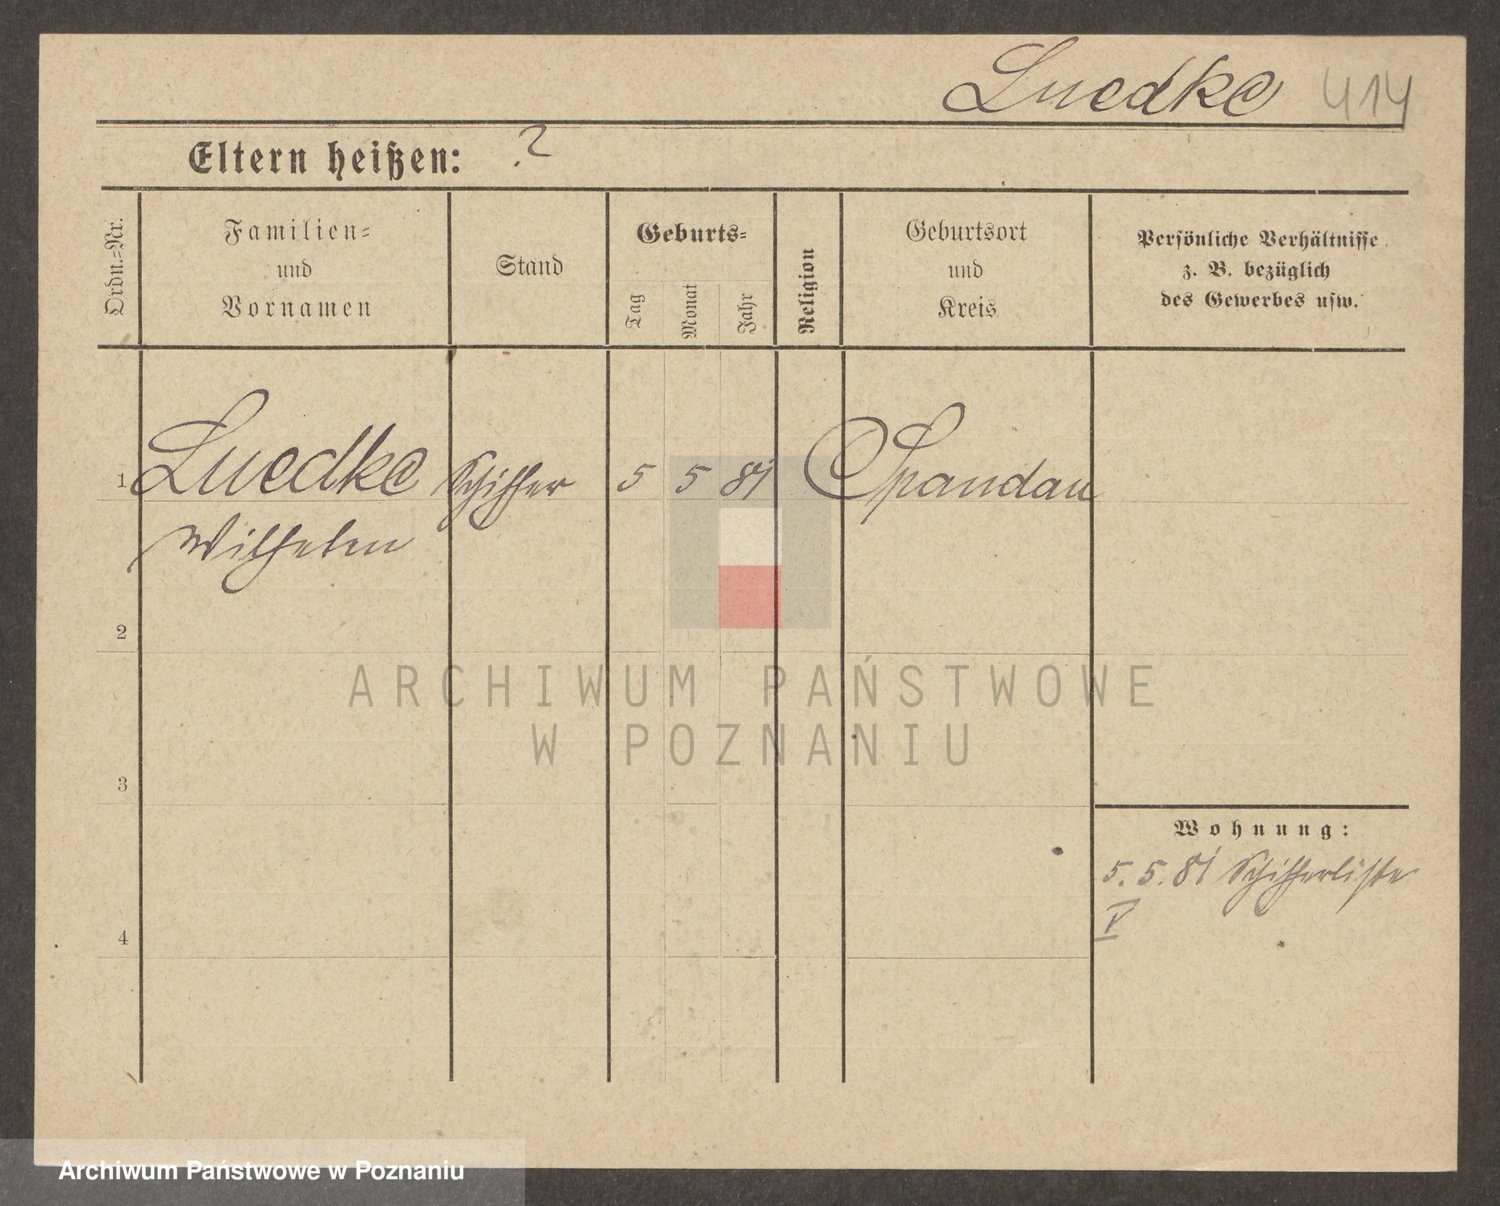 Luedke 414
Eltern heißen: ?
Ordn.-Nr.
Familien-
und
Vornamen
Stand
Geburts-
Tag
Monat
Jahr
Religion
Geburtsort
und
Kreis
Persönliche Verhältnisse
z. B. bezüglich
des Gewerbes usw.
1 Luedke Schiffer 5 5 81 Spandau
Wilhelm
2
3
4
Wohnung:
5. 5. 81 Schifferliste
V
ARCHIWUM PAŃSTWOWE
W POZNANIU
Archiwum Państwowe w Poznaniu